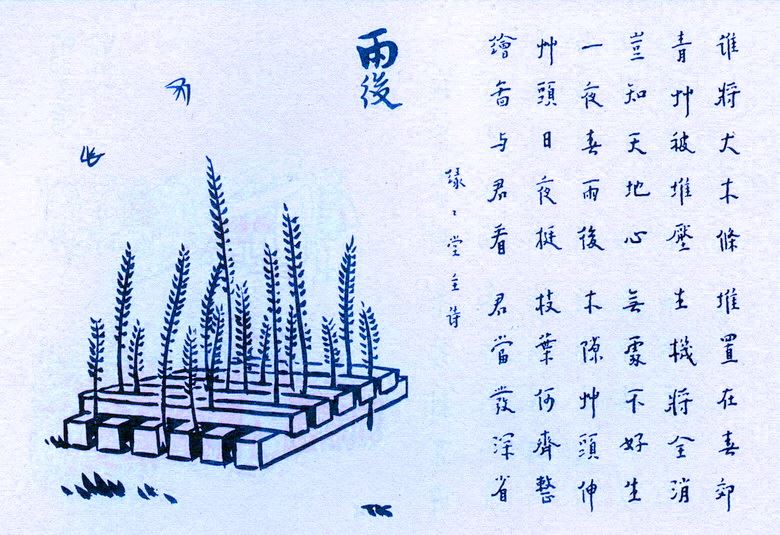 誰將大木條 堆置在春郊
青艸被堆壓 生機將全消
豈知天地心 無處不好生
一夜春雨後 木隙艸頭伸
艸頭日夜挺 枝葉何齊整
繪圖与君看 君當發深省
緣〻堂主詩
雨後
TK